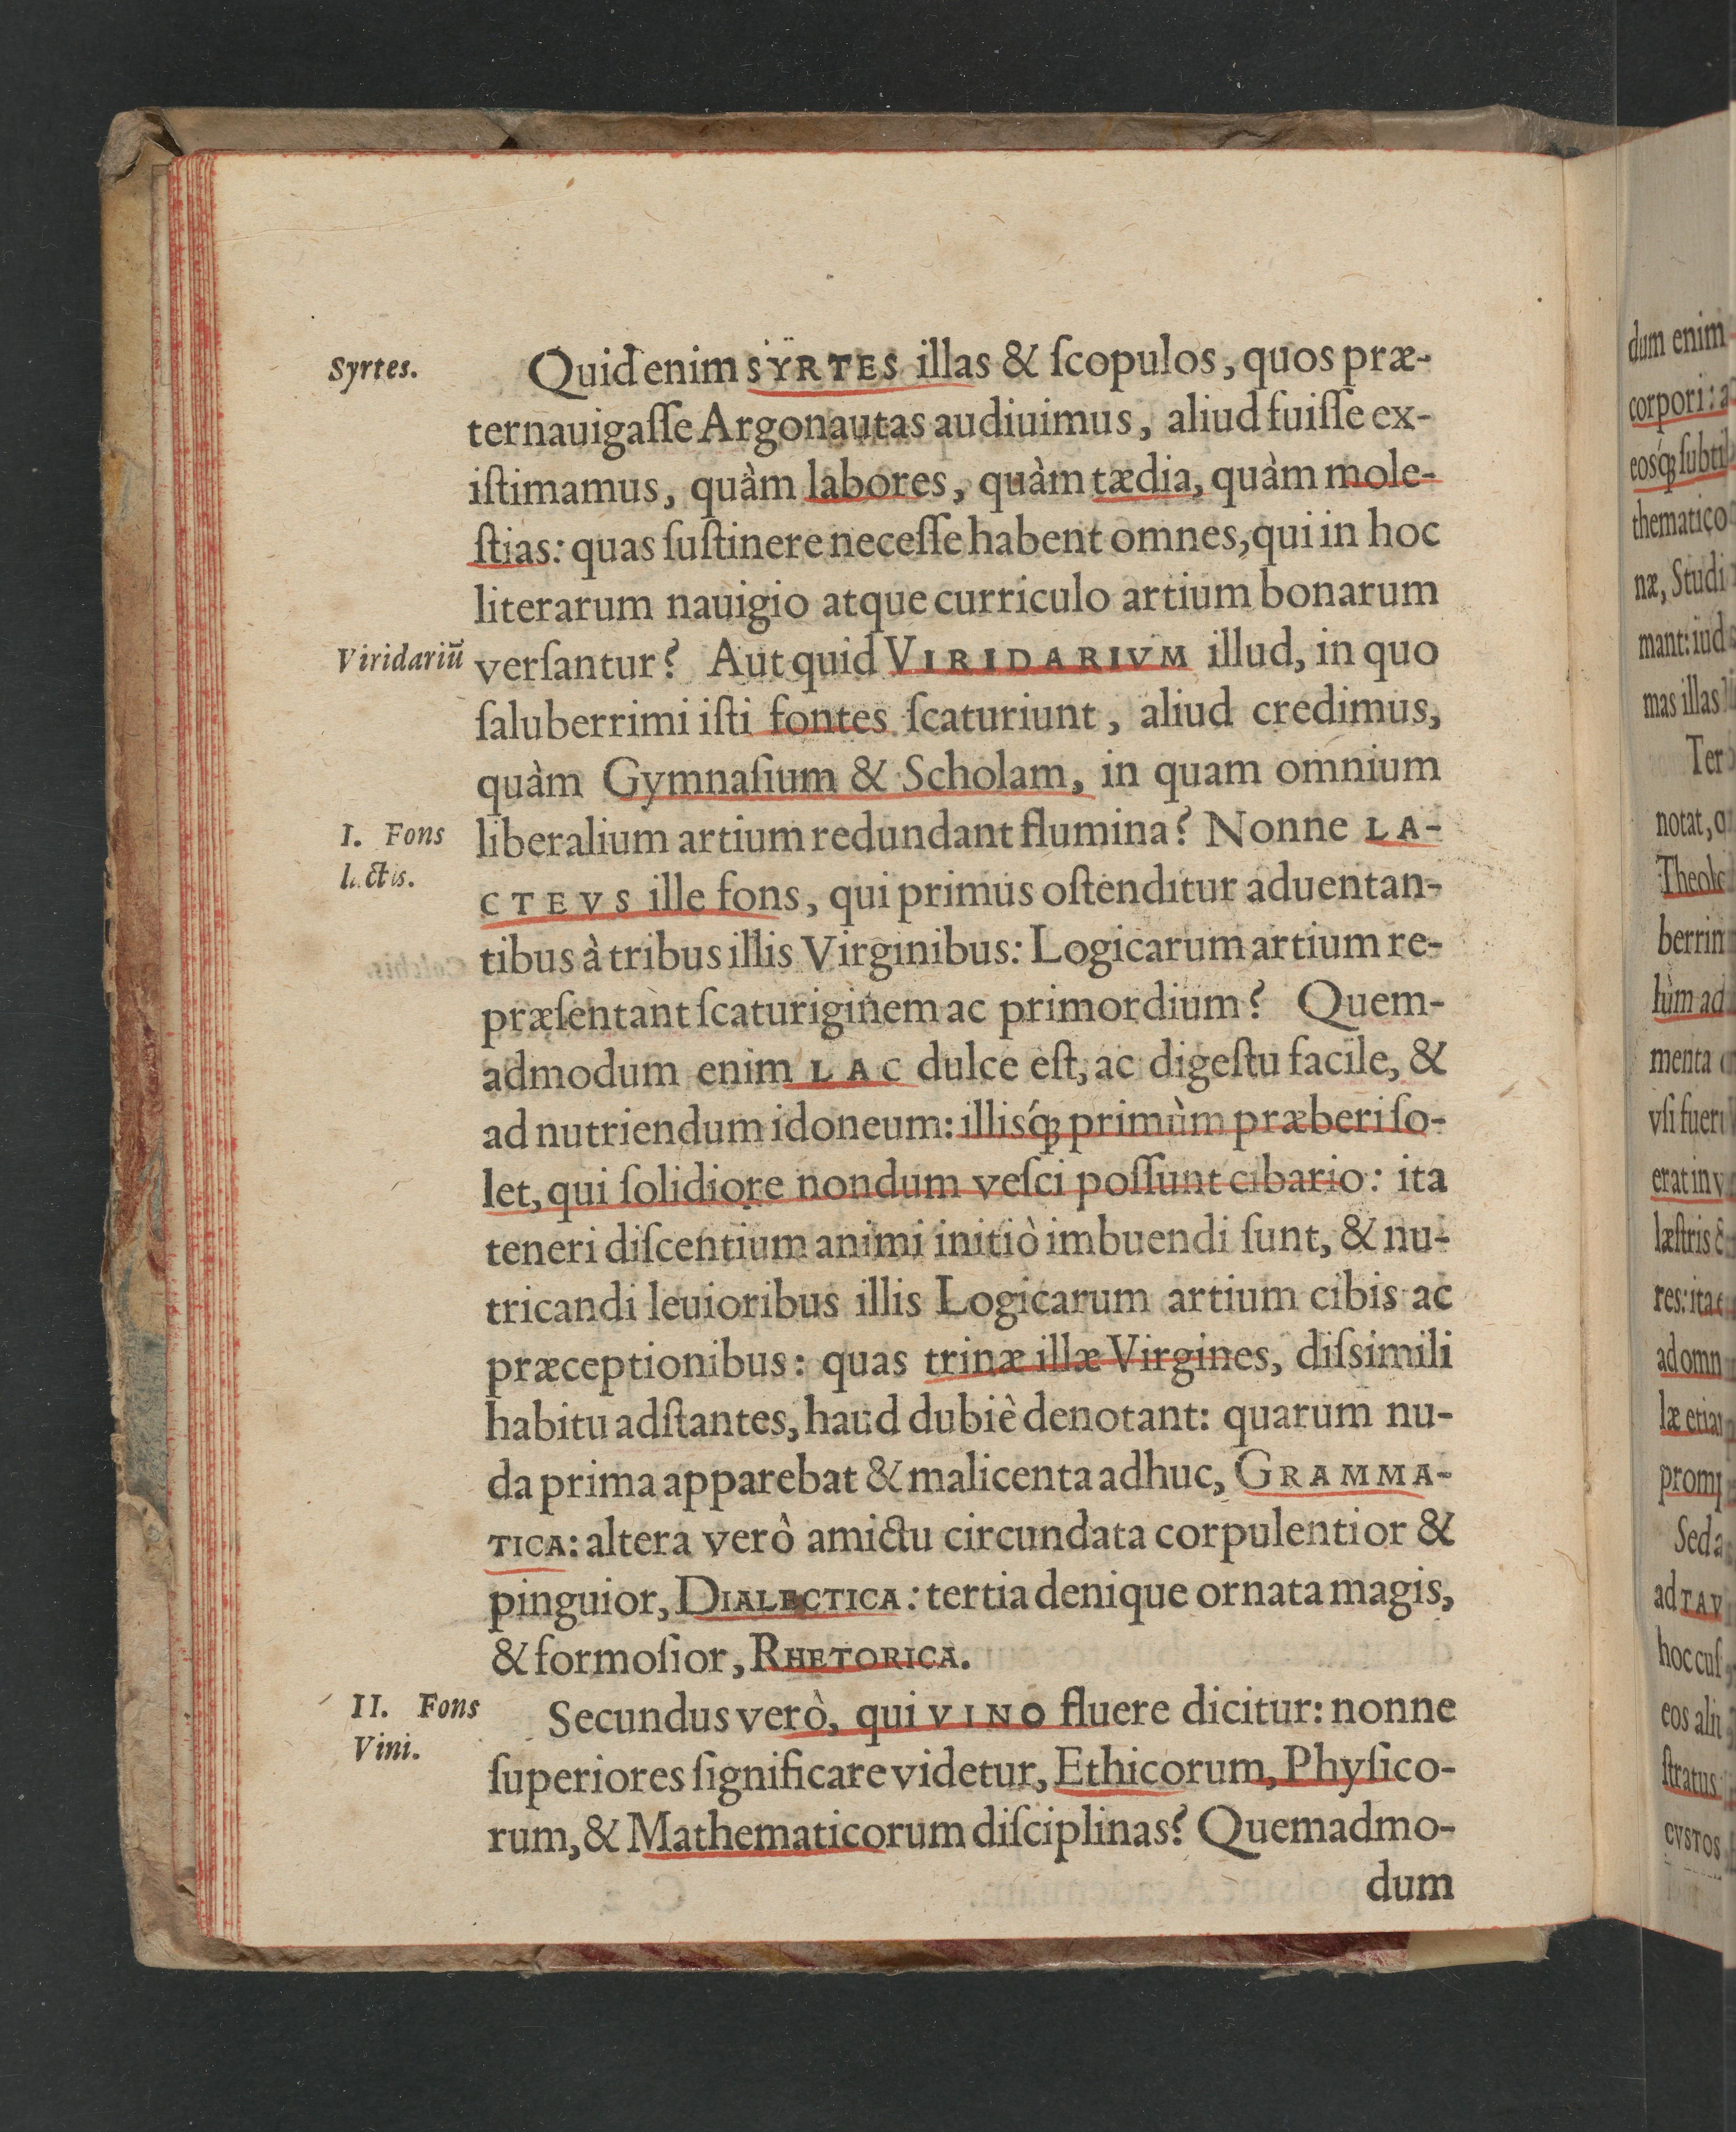 Syrtes.
Quid enim SYRTES illas & ſcopulos, quos præ-
ternauigaſſe Argonautas audiuimus, aliud fuiſſe ex-
iſtimamus, quàm labores, quàm tædia, quàm mole-
ſtias: quas ſuſtinere neceſſe habent omnes, qui in hoc
literarum nauigio atque curriculo artium bonarum
Viridariū
verſantur? Aut quid VIRIDARIVM illud, in quo
ſaluberrimi iſti fontes ſcaturiunt, aliud credimus,
quàm Gymnaſium & Scholam, in quam omnium
I. Fons
lactis.
liberalium artium redundant flumina? Nonne LA-
CTEVS ille fons, qui primus oſtenditur aduentan-
tibus à tribus illis Virginibus: Logicarum artium re-
præſentant ſcaturiginem ac primordium? Quem-
admodum enim LAC dulce eſt, ac digeſtu facile, &
ad nutriendum idoneum: illisq́; primùm præberi ſo-
let, qui ſolidiore nondum veſci poſſunt cibario: ita
teneri diſcentium animi initiò imbuendi ſunt, & nu-
tricandi leuioribus illis Logicarum artium cibis ac
præceptionibus: quas trinæ illæ Virgines, diſsimili
habitu adſtantes, haud dubiè denotant: quarum nu-
da prima apparebat & malicenta adhuc, GRAMMA-
TICA: altera verò amictu circundata corpulentior &
pinguior, DIALECTICA: tertia denique ornata magis,
& formoſior, RHETORICA.
II. Fons
Vini.
Secundus verò, qui VINO fluere dicitur: nonne
ſuperiores ſignificare videtur, Ethicorum, Phyſico-
rum, & Mathematicorum diſciplinas? Quemadmo-
dum
dum enim
corpori: a
eosq́; ſubti
thematico
næ, Studi
mant: iud
mas illas
Ter
notat, q
Theolo
berrim
lùm ad
menta
vſi fuer
erat in v
læſtris &
res: ita
ad omn
læ etia
prom
Sed a
ad TAV
hoc cuſ
eos ali
ſtratus
CVSTOS